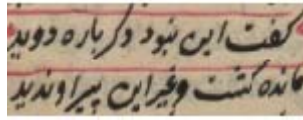 کفت این نبود دکر باره دوید
مانده کشت و غیر این پیر او ندید